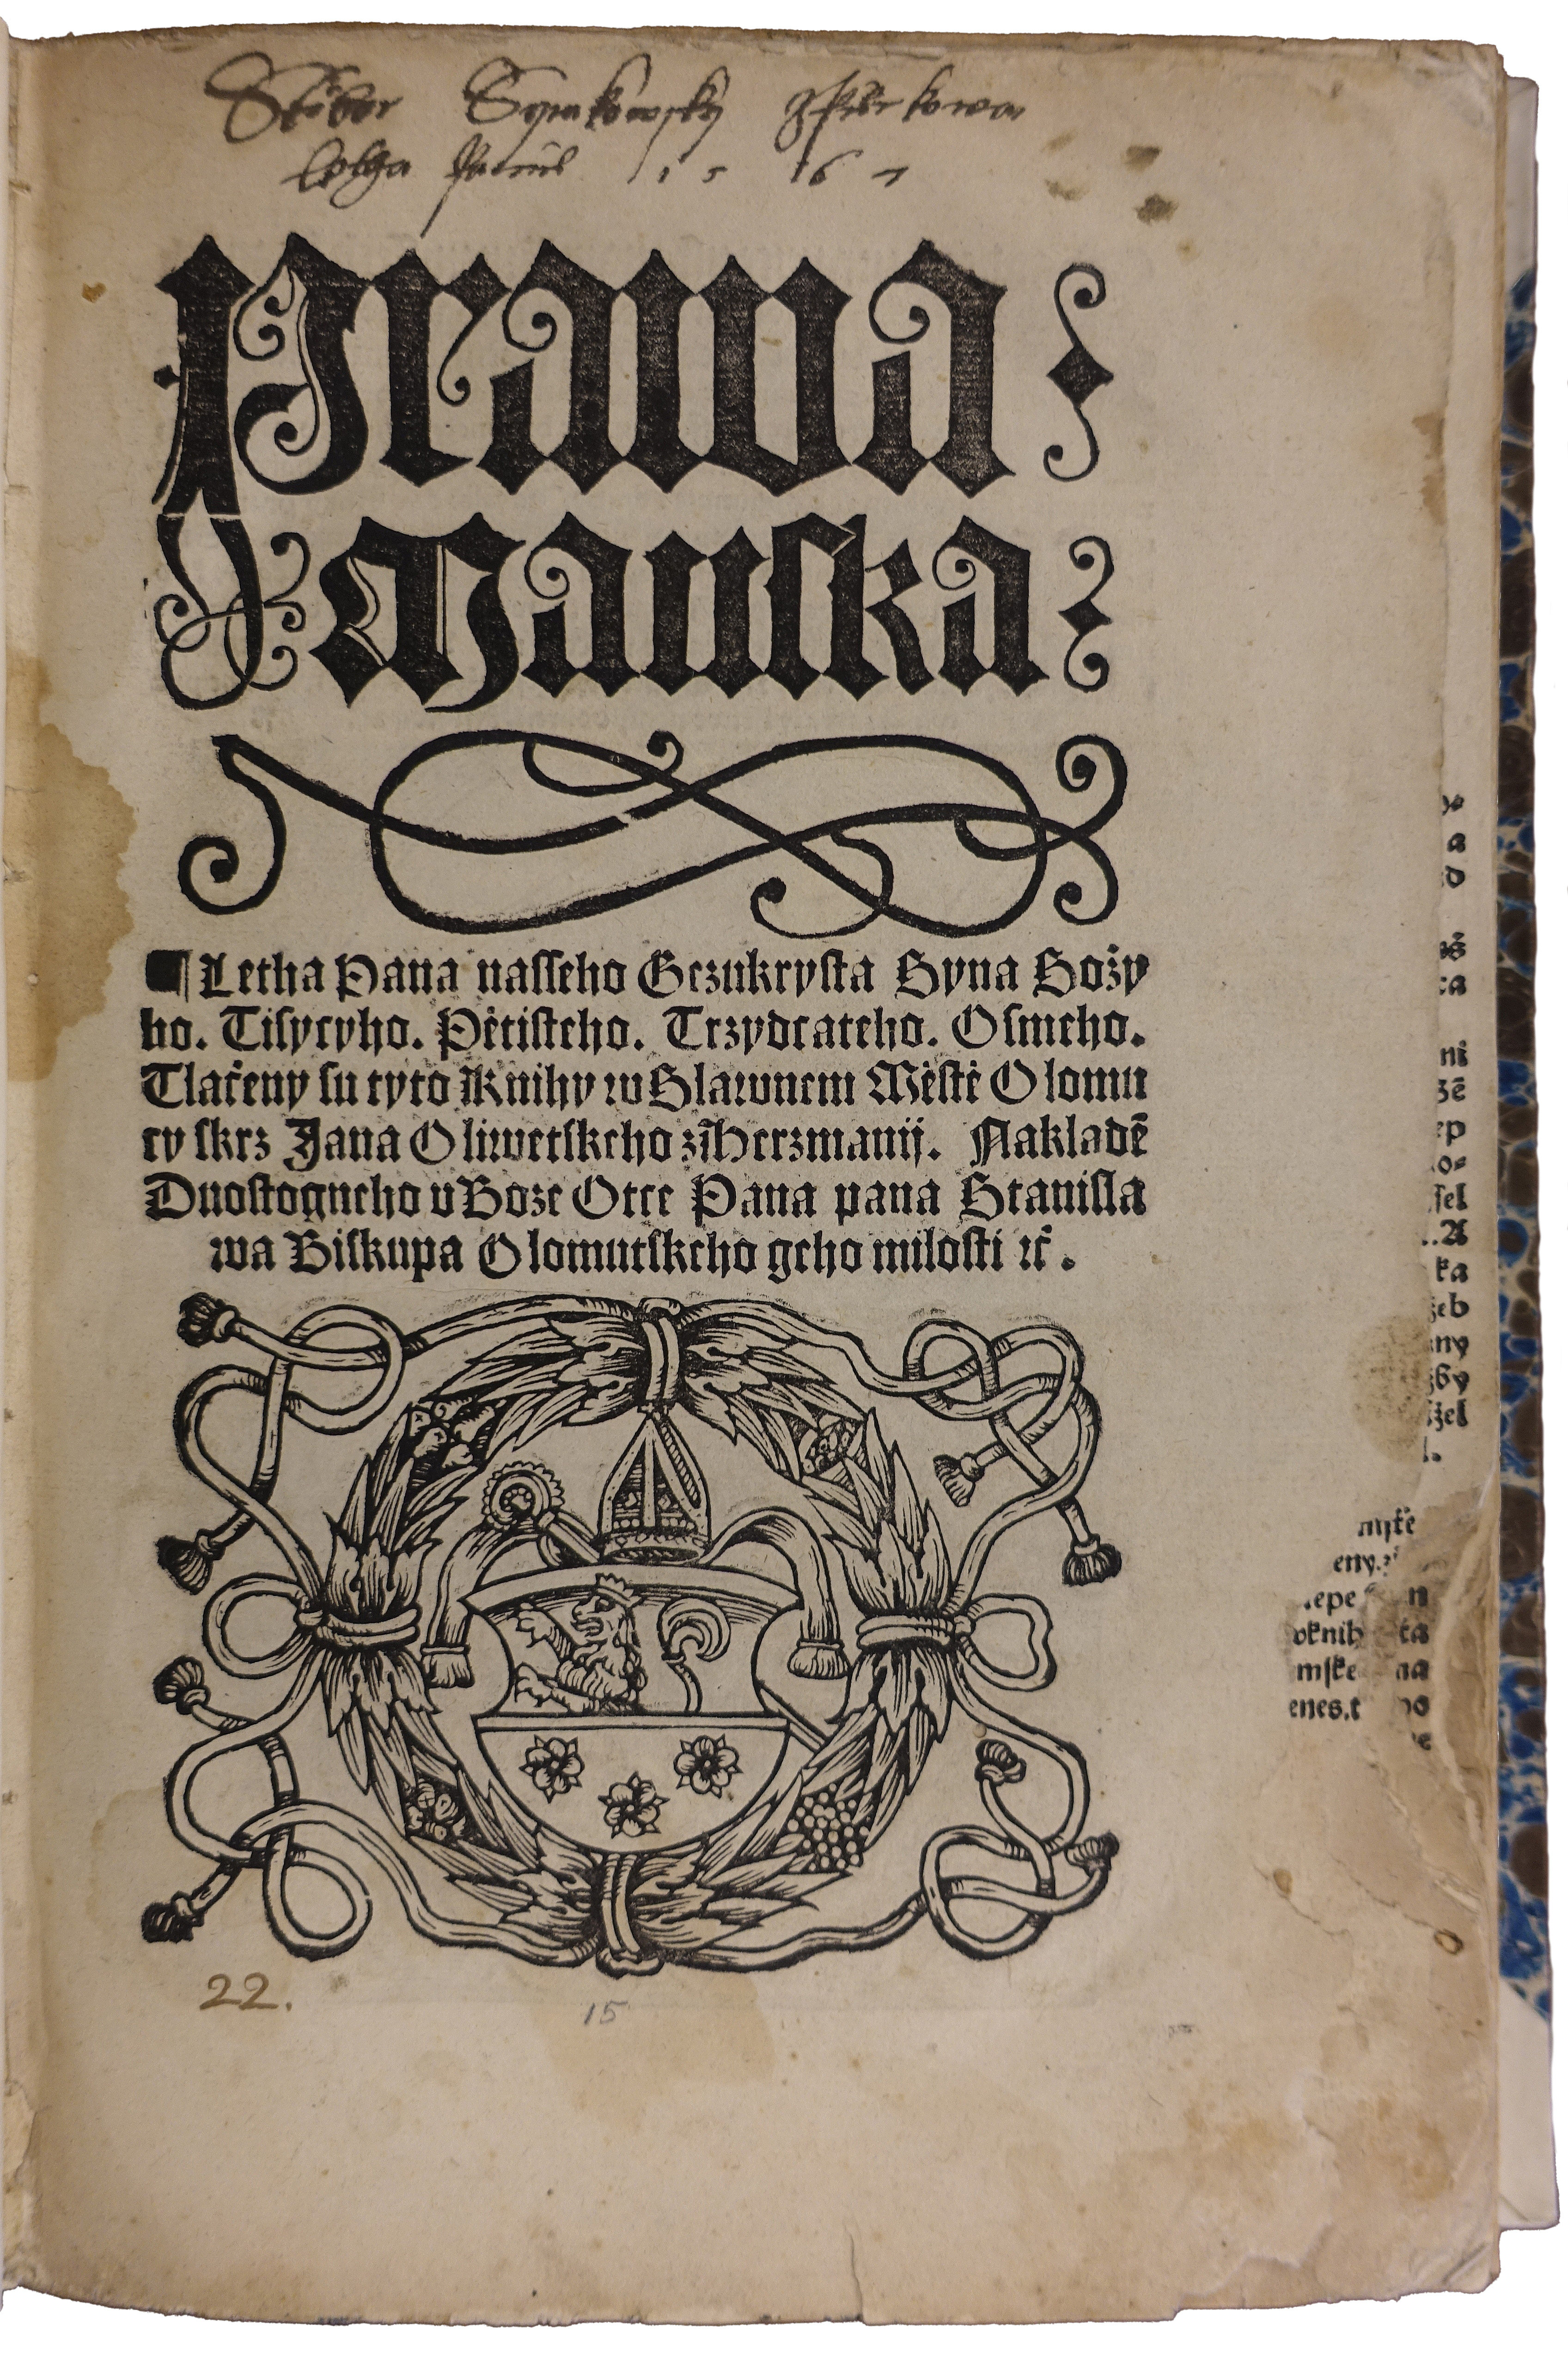 Prawa
Manska
¶ Letha Pana nasseho Gezukrysta Syna Božy
ho. Tisycyho. Pětisteho. Trzydcateho. Osmeho.
Tlačeny su tyto Knihy w Slawnem Městě Olomu
cy skrz Jana Oliwetskeho z Herzmanij. Nakladē
Duostogneho v Boze Otce Pana pana Stanisla
wa Biskupa Olomutskeho geho milosti ꝛč.
22.
15